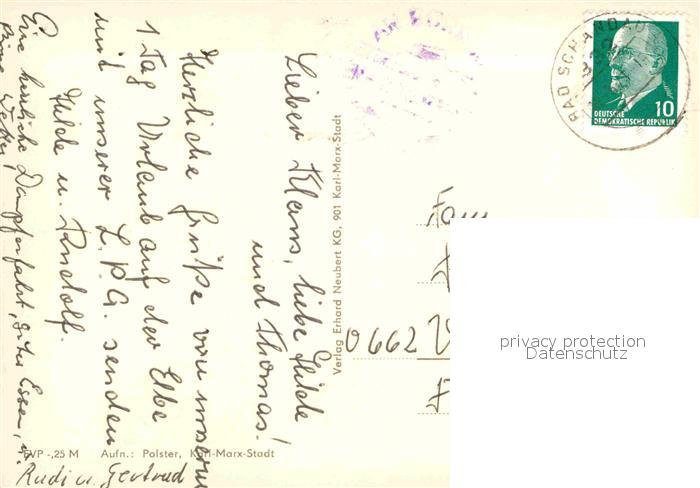 Lieber Klaus, liebe Hilde
und Thomas!
Herzliche Grüße von unserm
1 Tag Urlaub auf der Elbe
mit unserer L.P.G. senden
Hilde u. Rudolf.
Eine herrliche Dampferfahrt, gutes Essen, u.
Prima Wetter
Rudi u. Gertrud
EVP -,25 M Aufn.: Polster, Karl-Marx-Stadt
Verlag Erhard Neubert KG, 901 Karl-Marx-Stadt
BAD SCHANDAU
10
DEUTSCHE
DEMOKRATISCHE REPUBLIK
Fam
0662
privacy protection
Datenschutz